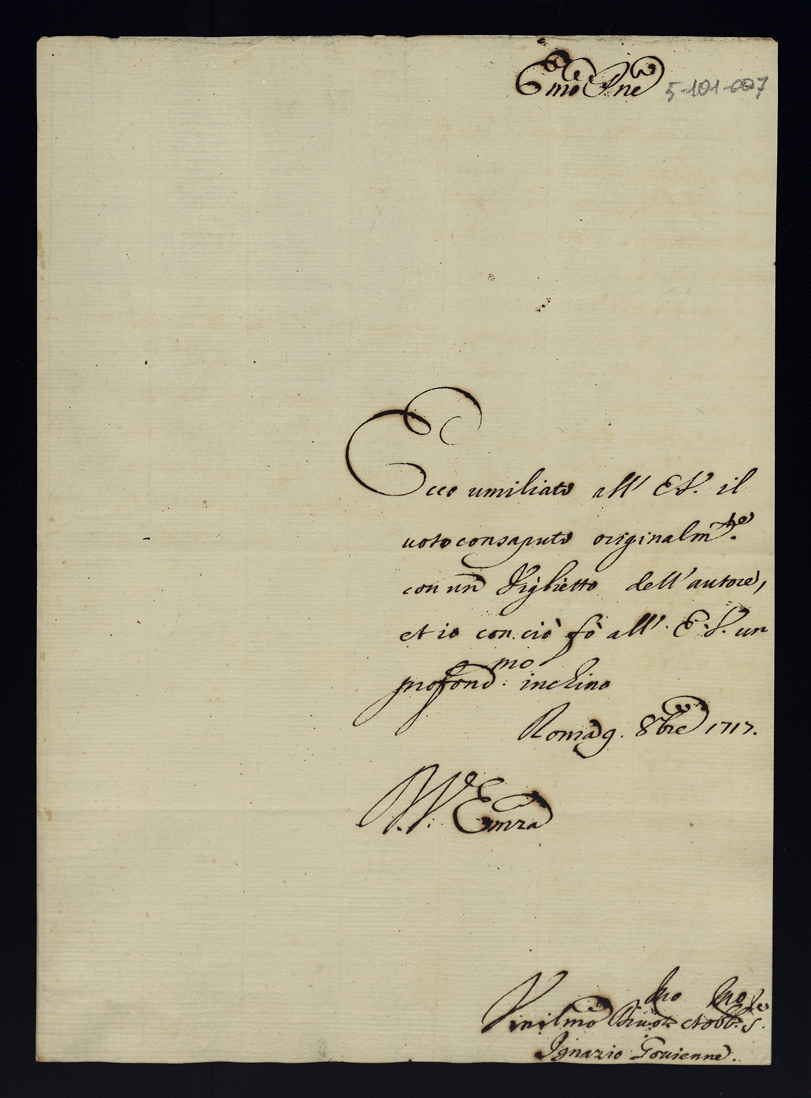 Emo Pne 5-101-007
Ecco umiliato all' E.V. il
voto consaputo originalm.te
con un Viglietto dell'autore,
et io con ciò fò all' E.V. un
profond.mo inchino
Roma 9. 8bre 1717.
V. Emza
Umilmo Divot.mo et obb.mo S.re
Ignazio